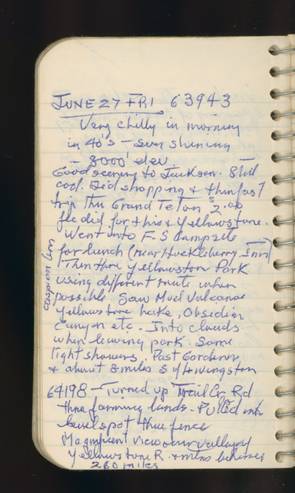 JUNE 27 FRI 63943
Very chilly in morning
in 40's - sun shining
- 8000' elev
Good scenery to Jackson. Still
cool. Did shopping & then fast
trip thru Grand Teton 2.00
fee did for this & Yellowstone.
Went into F-S Campsite
for lunch (near Huckleberry Inn)
Then thru Yellowstone Park
using different route when
possible. Saw Mud Volcanoe
Yellowstone Lake, Obsidian
Canyon etc - Into clouds
when leaving park. Some
light showers. Past Gardiner
& about 8 miles S of Livingston
64198 - Turned up Trail Cr Rd
thru farming lands - Pulled into
level spot thru fence
Magnificent view our valley of
Yellowstone R. & mtns behind
260 miles